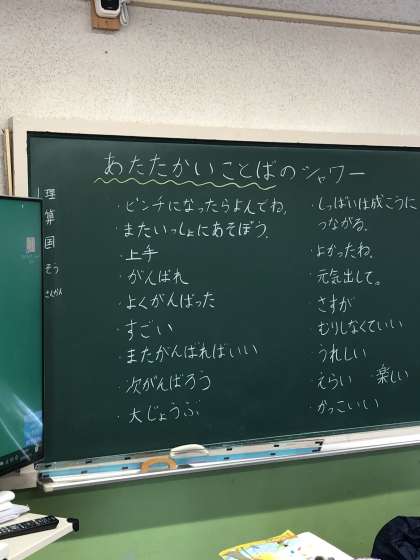 あたたかいことばのシャワー
・ピンチになったらよんでね。
・またいっしょにあそぼう。
・上手
・がんばれ
・よくがんばった
・すごい
・またがんばればいい
・次がんばろう
・大じょうぶ
・しっぱいは成こうに
つながる。
・よかったね。
・元気出して。
・さすが
・むりしなくていい
・うれしい
・えらい ・楽しい
・かっこいい
理
算
国
そう
さんかん